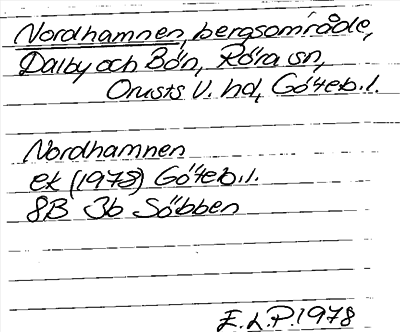 Nordhamnen, bergsområde,
Dalby och Bön, Röra sn,
Orusts V. hd, Göteb.l.
Nordhamnen
ek (1978) Göteb.l.
8B 3b Söbben
E.L.P 1978